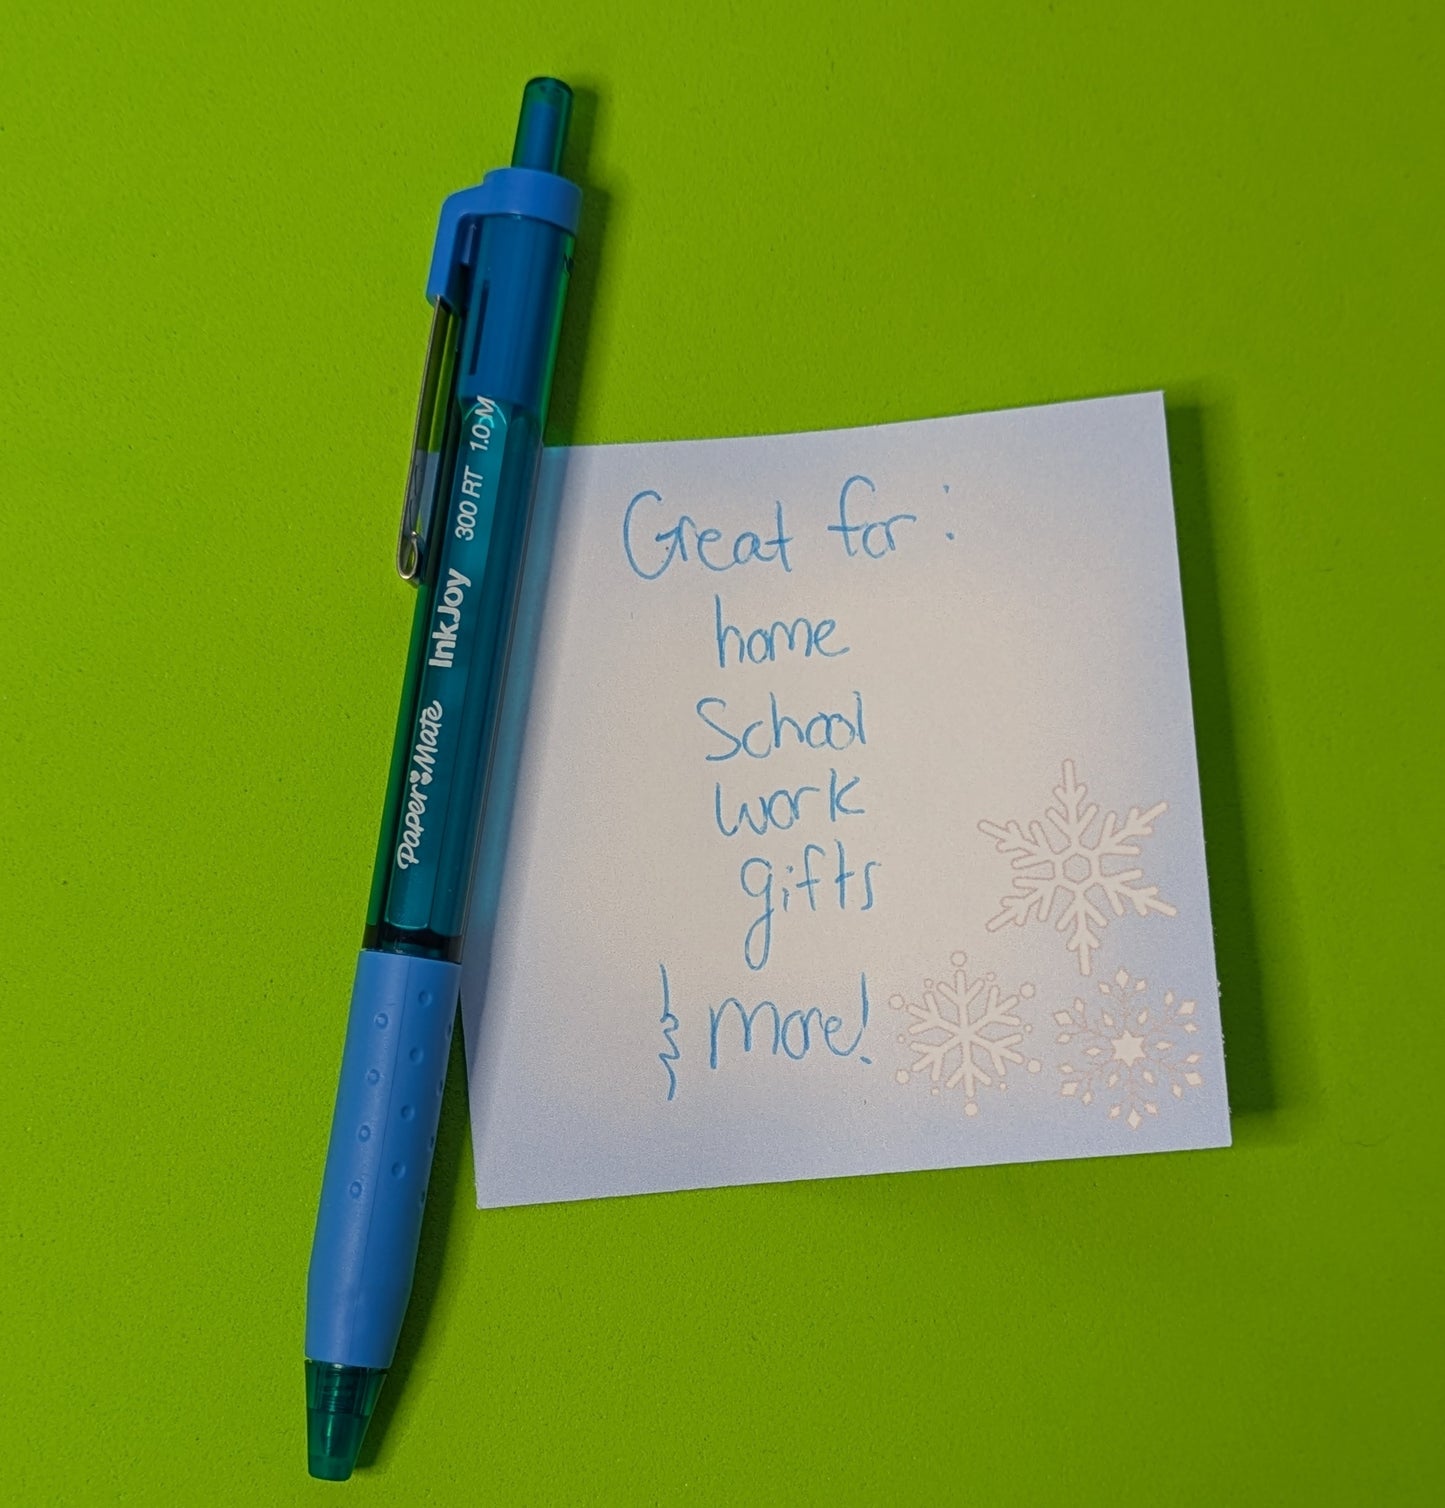 Paper Mate InkJoy 300 RT 1.0 M
Great for:
home
School
work
gifts
& more!